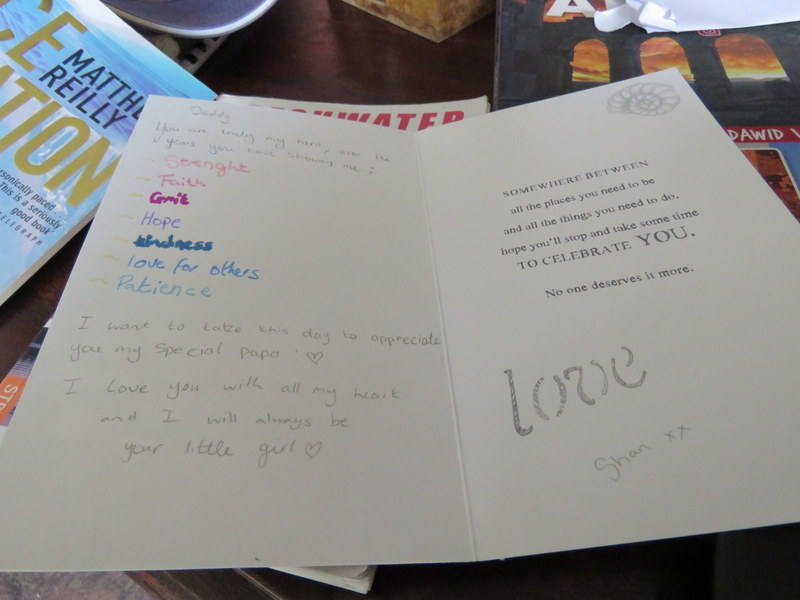 CE
ATION
MATTHE
REILLY
ersonically paced
This is a seriously
good book'
TELEGRAPH
HWATER
A
DAWID
STR
Daddy
You are truly my hero, over the
years you have shown me :
- Strenght
- Faith
- Grit
- Hope
- kindness
- love for others
- Patience
I want to take this day to appreciate
you my special papa ! ♡
I love you with all my heart
and I will always be
your little girl ♡
SOMEWHERE BETWEEN
all the places you need to be
and all the things you need to do,
hope you'll stop and take some time
TO CELEBRATE YOU.
No one deserves it more.
love
Shan xx